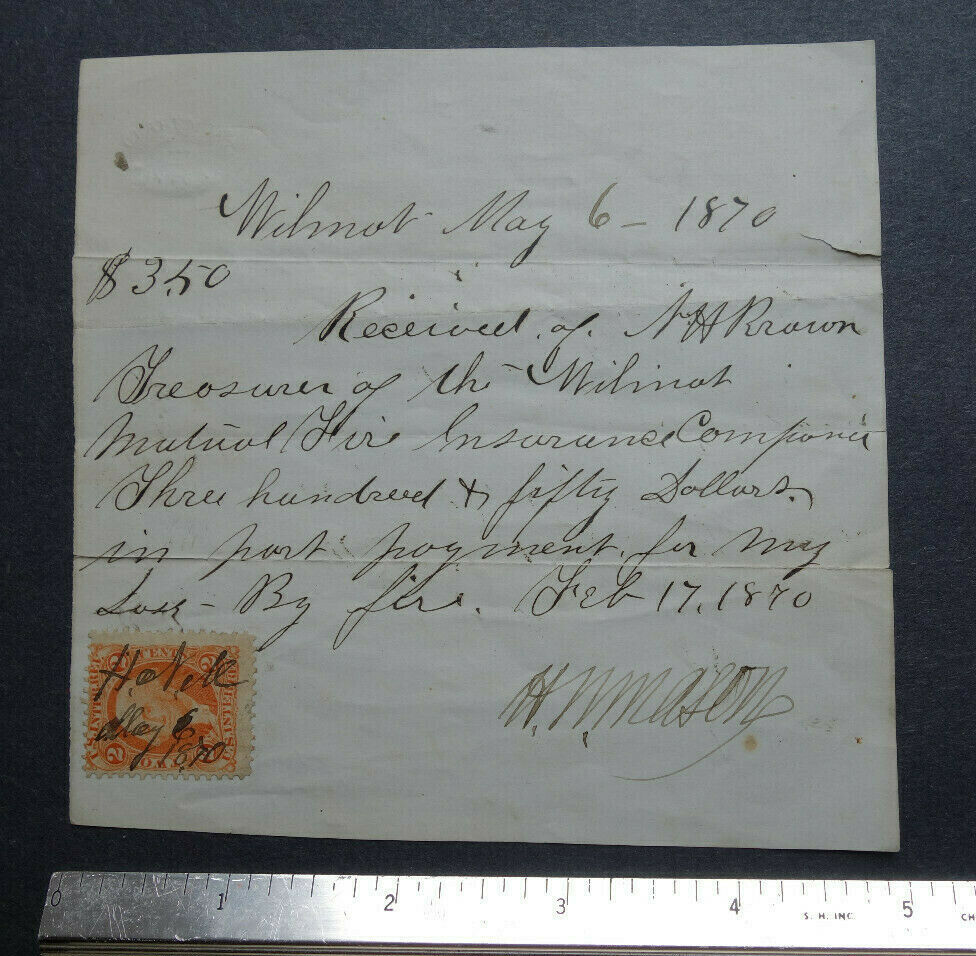 Wilmot May 6 - 1870
$3.50
Received of N H Brown
Treasurer of the Wilmot
Mutual Fire Insurance Company
Three hundred & fifty Dollars
in part payment for my
Loss - By fire. Feb 17, 1870
H. N. Mason
U.S. INTER. REV.
2 CENTS 2
U.S. INTER. REV.
H. N. M
May 6
1870
2
0 1 2 3 4 5
S. H. INC.
CH